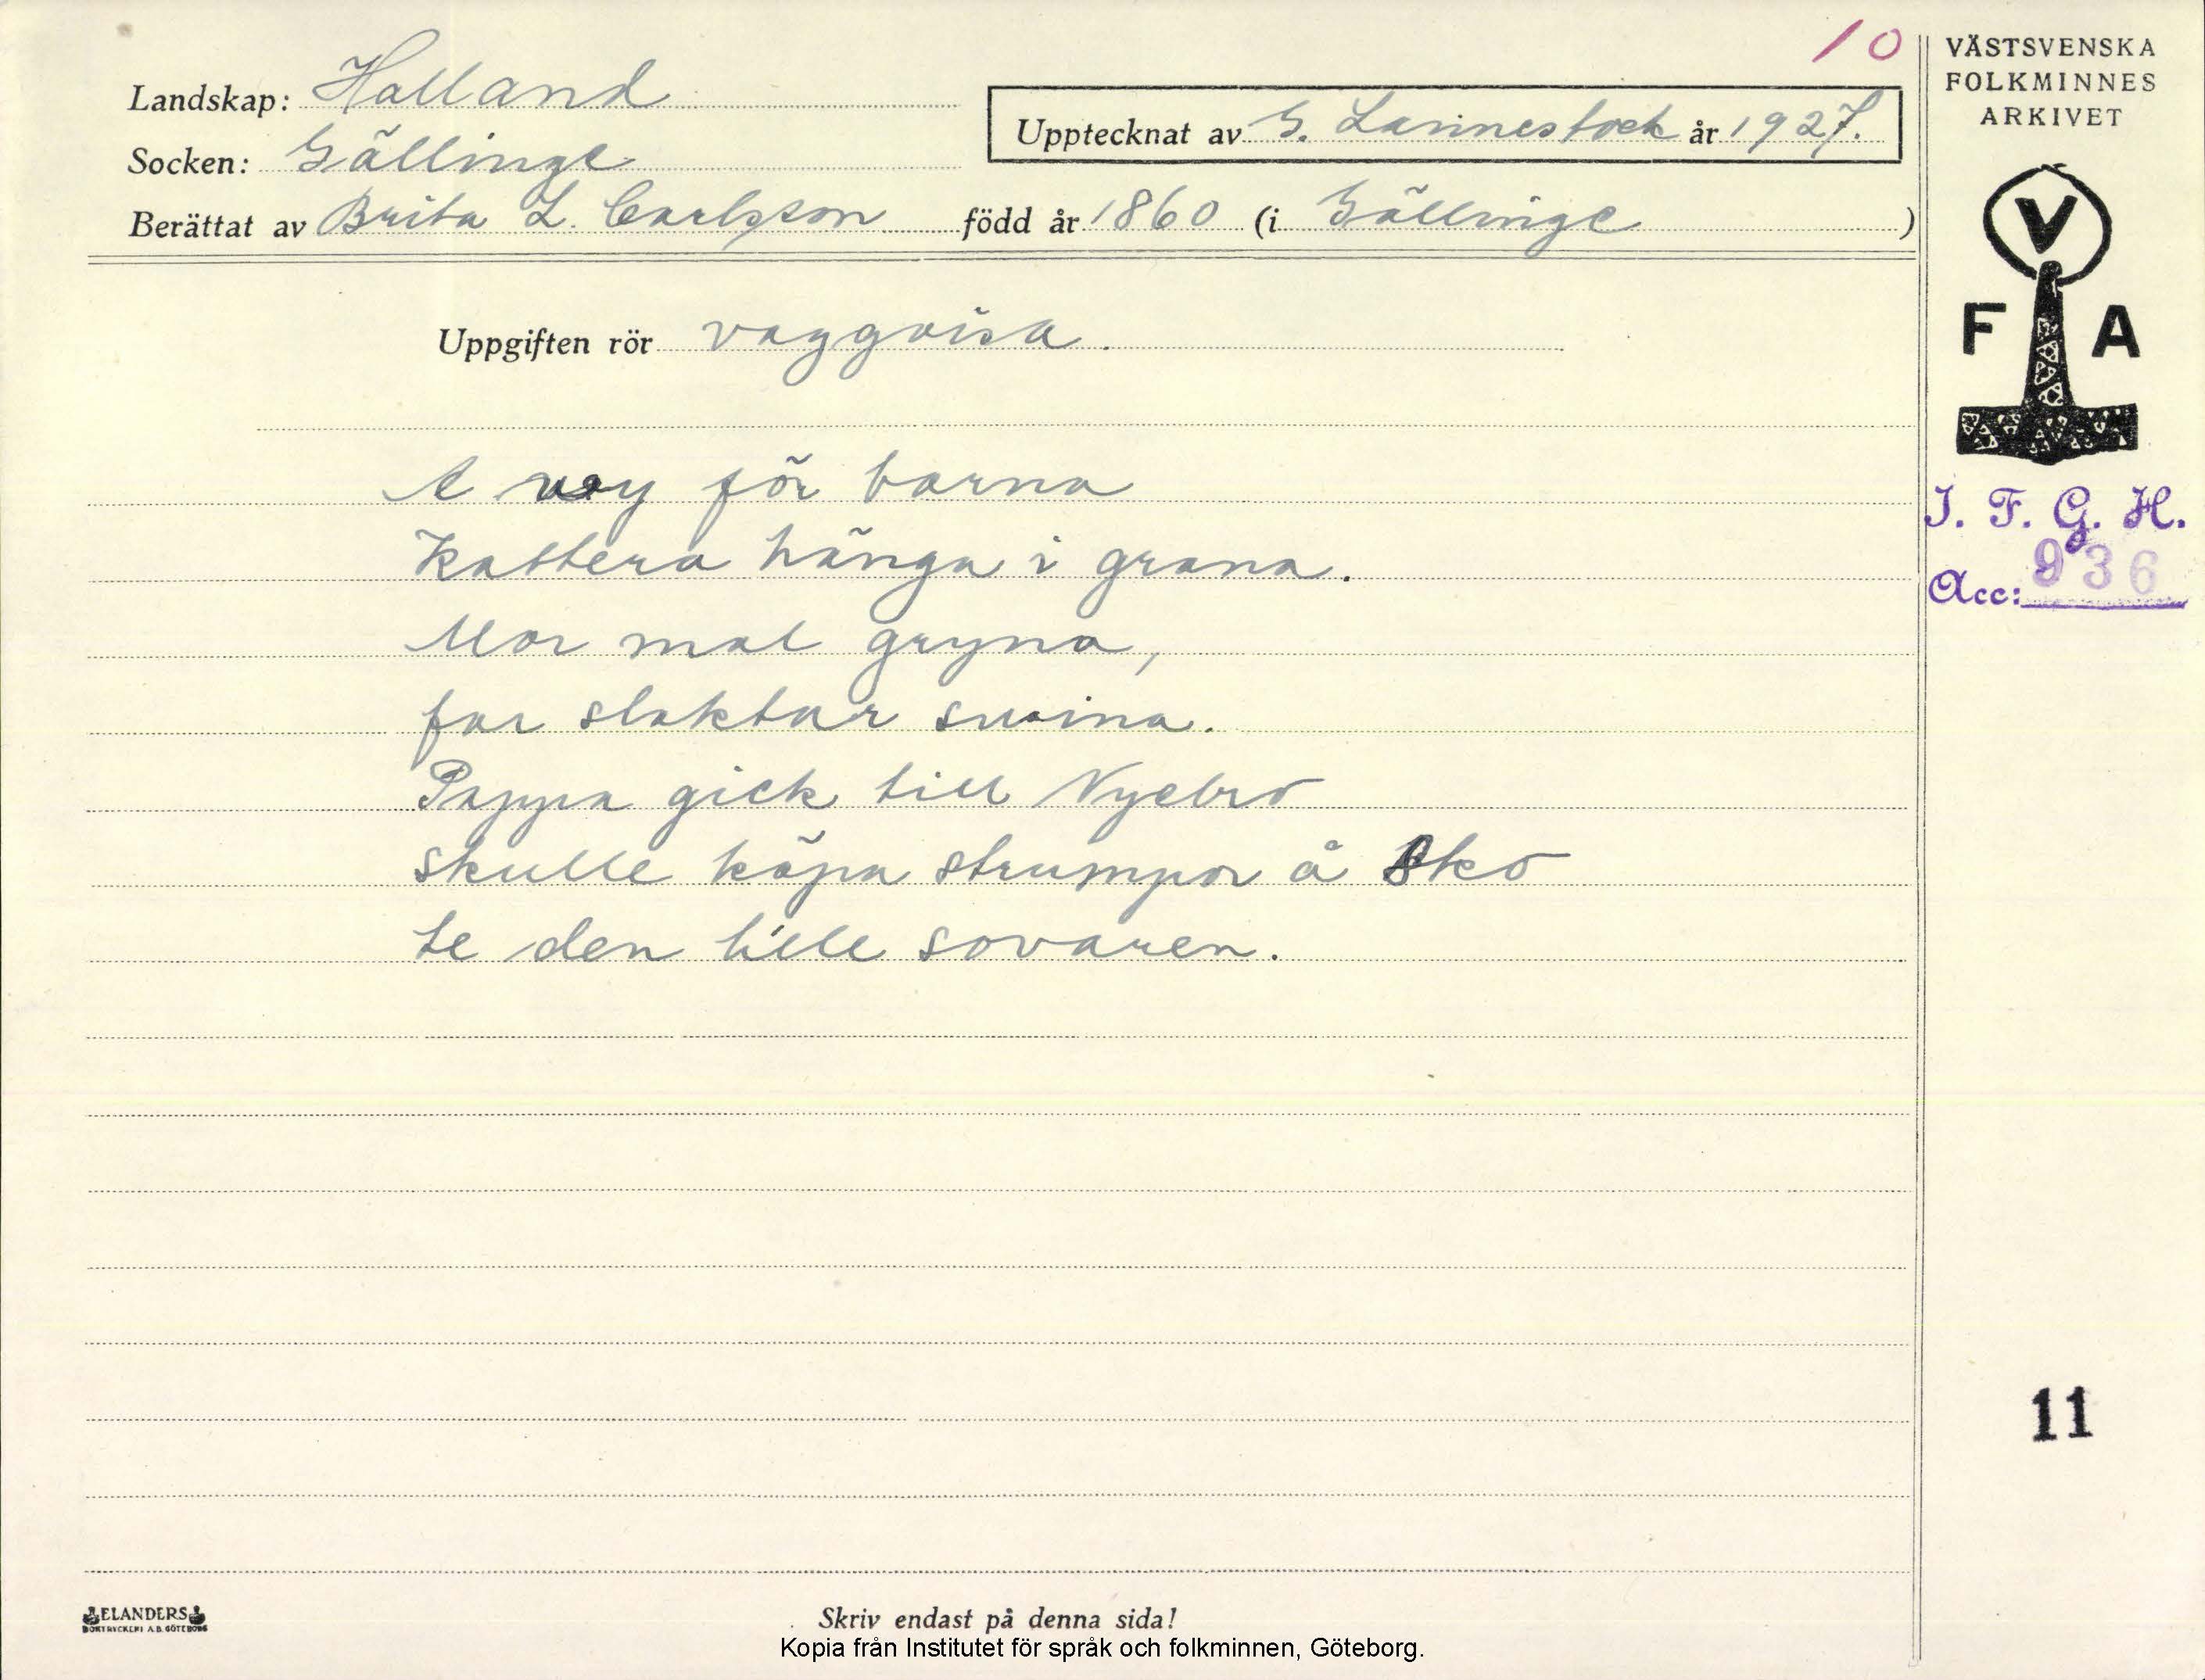 10
VÄSTSVENSKA
FOLKMINNES
ARKIVET
Landskap: Halland
Upptecknat av G. Larmestock år 1927.
Socken: Gällinge
Berättat av Brita L. Carlsson född år 1860 (i Gällinge )
V
F A
Uppgiften rör vaggvisa.
I. F. G. H.
Acc: 936
A vay för barna
Kattera hänga i grana.
Mor mal gryna,
far slaktar svina.
Pappa gick till Nyebro
skulle köpa strumpor å sko
te den lille sovaren.
11
ELANDERS
BOKTRYCKERI A.B. GÖTEBORG
Skriv endast på denna sida!
Kopia från Institutet för språk och folkminnen, Göteborg.